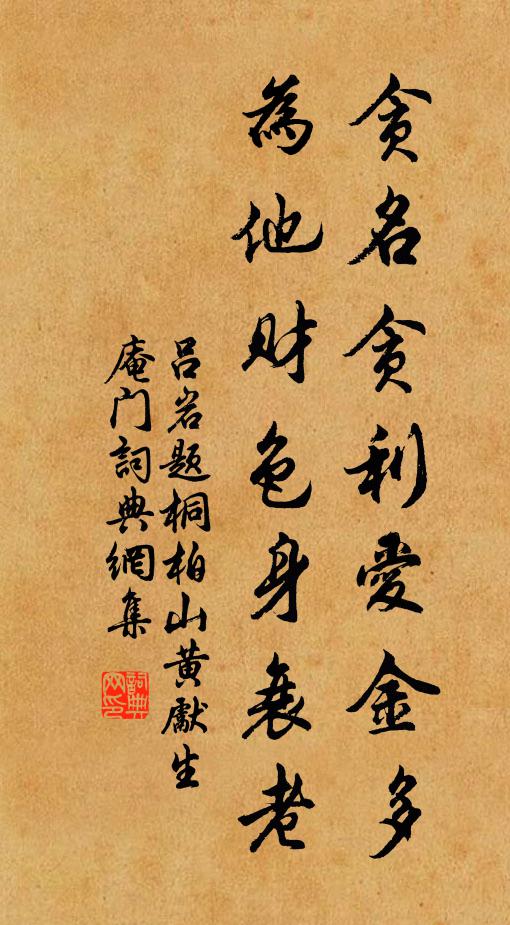 贪名贪利爱金多
為他财色身衰老
吕岩题桐柏山黄獻生
庵门詞典網集
詞典网印